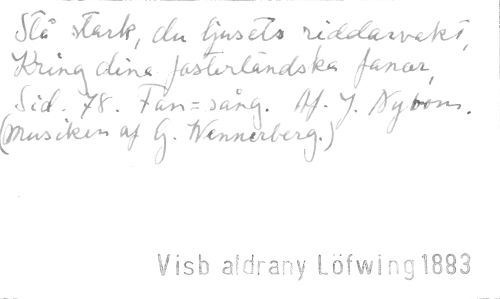 Stå stark, du ljusets riddarvakt,
Kring dina fosterländska fanor,
Sid. 78. Fan=sång. Af. J. Nybom.
(Musiken af G. Wennerberg.)
Visb aldrany Löfwing 1883